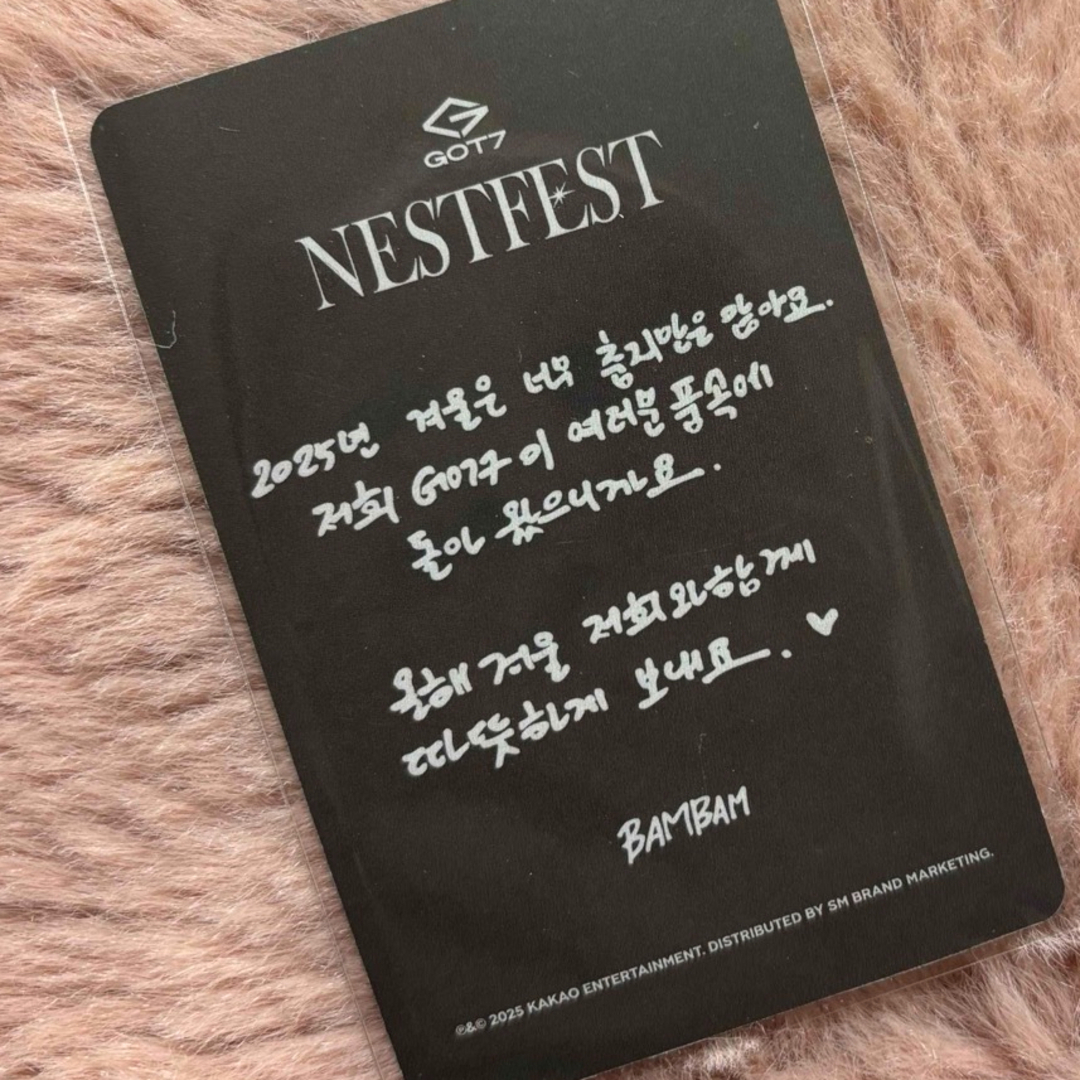 GOT7
NESTFEST
2025년 겨울은 너무 춥지만은 않아요.
저희 GOT7이 여러분 품속에
돌아 왔으니까요.
올해 겨울 저희와 함께
따뜻하게 보내요. ♥
BAMBAM
℗&© 2025 KAKAO ENTERTAINMENT. DISTRIBUTED BY SM BRAND MARKETING.